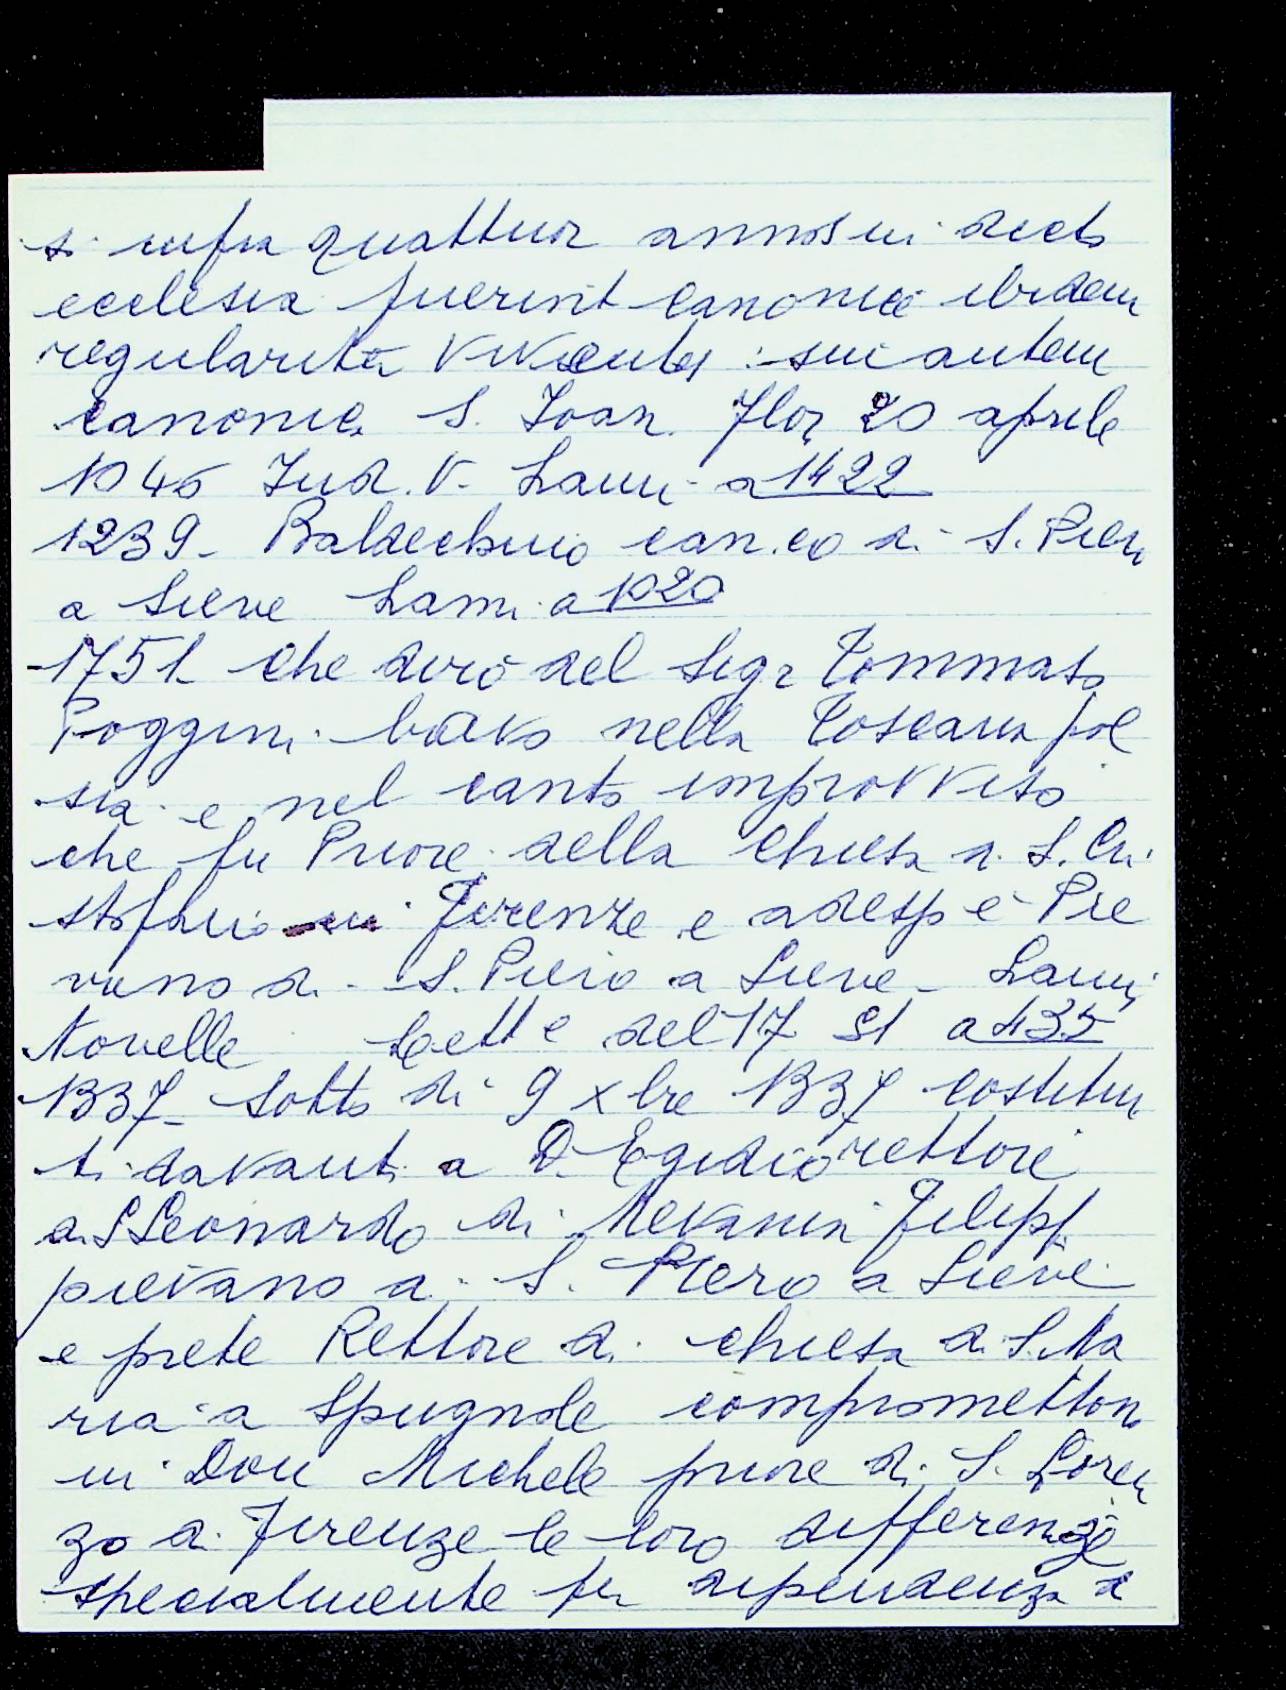 si infra quattuor annos in dicto
ecclesia fuerint canonici ibidem
regulariter viventes: sui autem
canonici S. Joan. Flor 20 aprile
1046 Ind. V. Lami a 1422
1239 - Baldecchino can.co di S. Piero
a Sieve Lami a 1020
-1751 che dirò del Sigr Tommaso
Poggini bravo nella Toscana poe
sia e nel canto improvviso
che fu Priore della Chiesa di S. Cri
stofano in Firenze e adesso è Pie
vano di S. Piero a Sieve - Lami
Novelle Lett e del 17 51 a 435
1337 - Sotto di 9 xbre 1337 costitui
ti davanti a D. Egidio rettore
di S Leonardo di Filipp
pievano di S. Piero a Sieve
e prete Rettore di chiesa di S. Ma
ria a Spugnole compromettono
in Don Michele priore di S. Loren
zo di Firenze le loro differenze
specialmente per dipendenza d